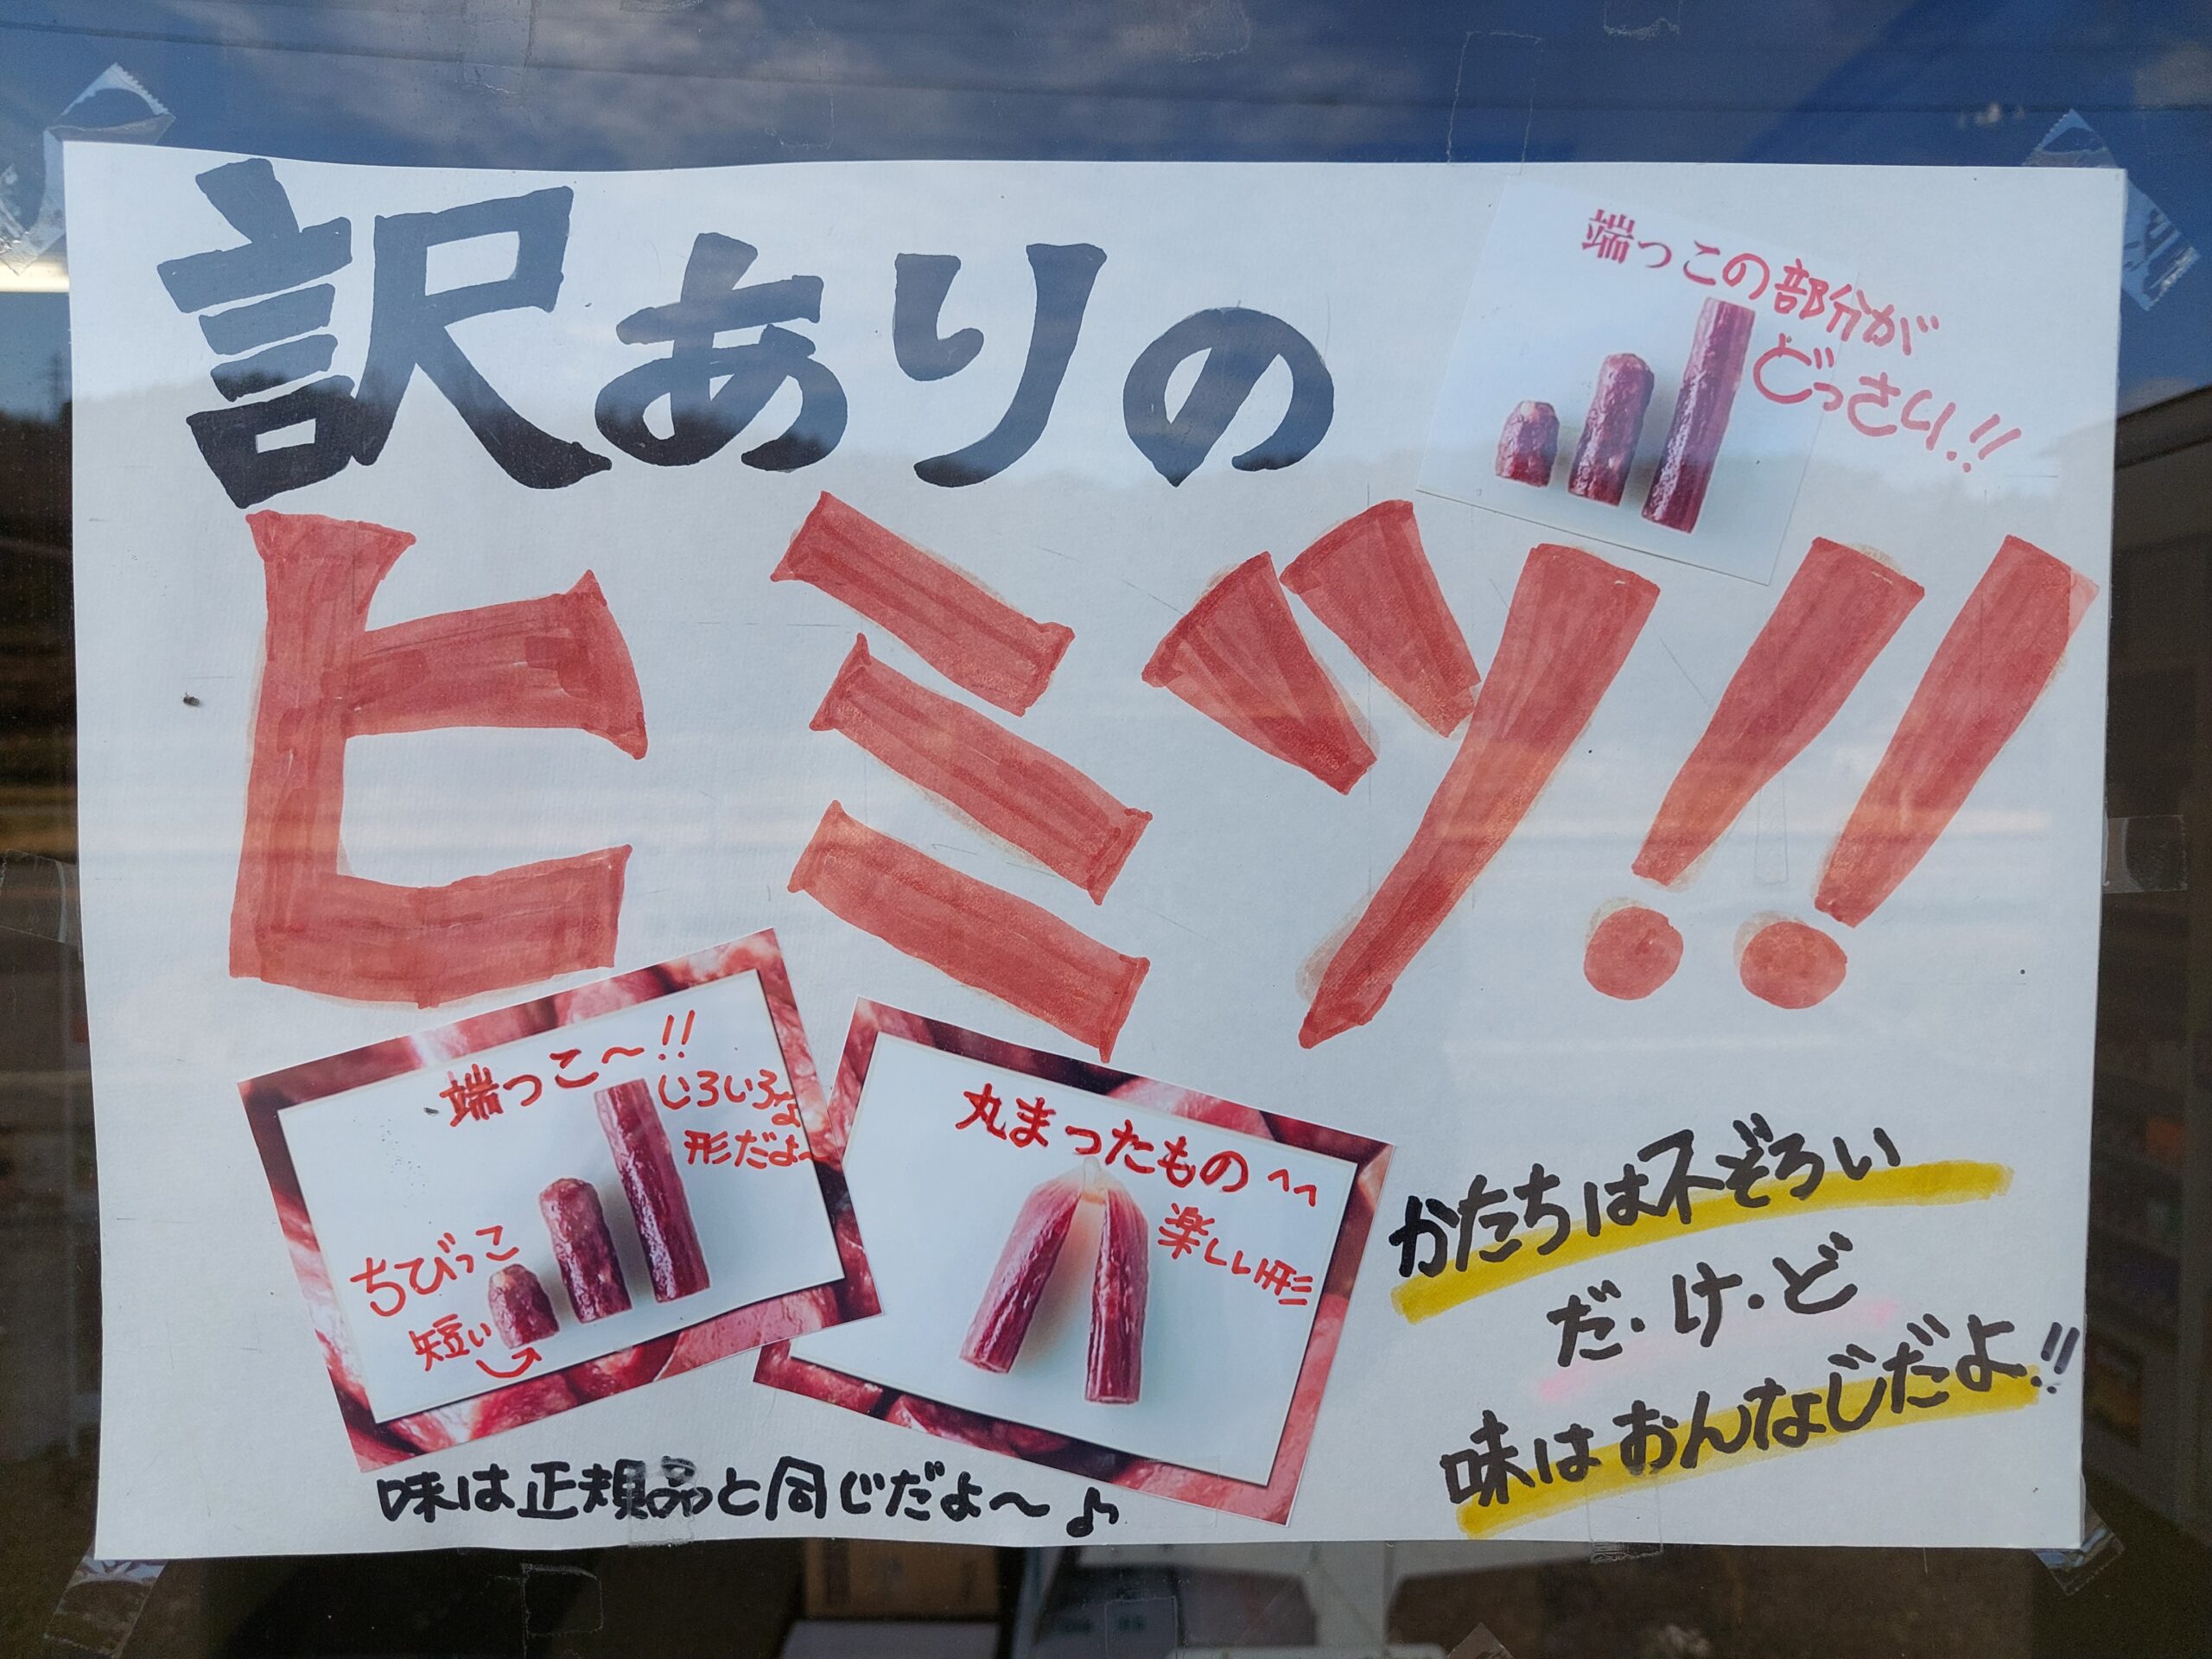 訳ありの
ヒミツ!!
端っこの部分が
どっさり!!
端っこ〜!!
いろいろな
形だよ〜
ちびっこ
短い
丸まったもの^^
楽しい形
味は正規品と同じだよ〜♪
かたちは不ぞろい
だ・け・ど
味はおんなじだよ!!